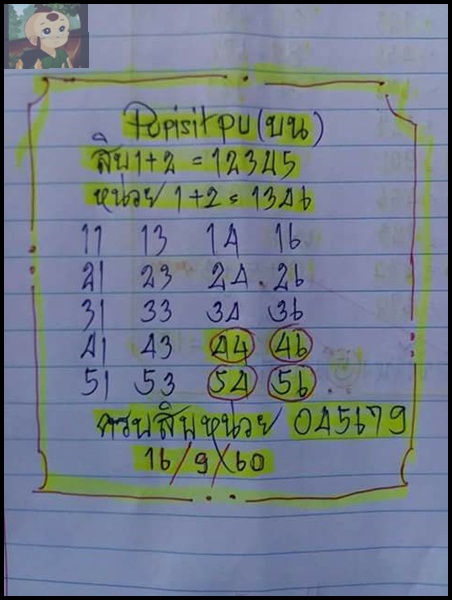 Pupisit pu (บน)
สิบ 1+2 = 12345
หน่วย 1+2 = 1346
11 13 14 16
21 23 24 26
31 33 34 36
41 43 44 46
51 53 54 56
ครบสิบหน่วย 045679
16/9/60